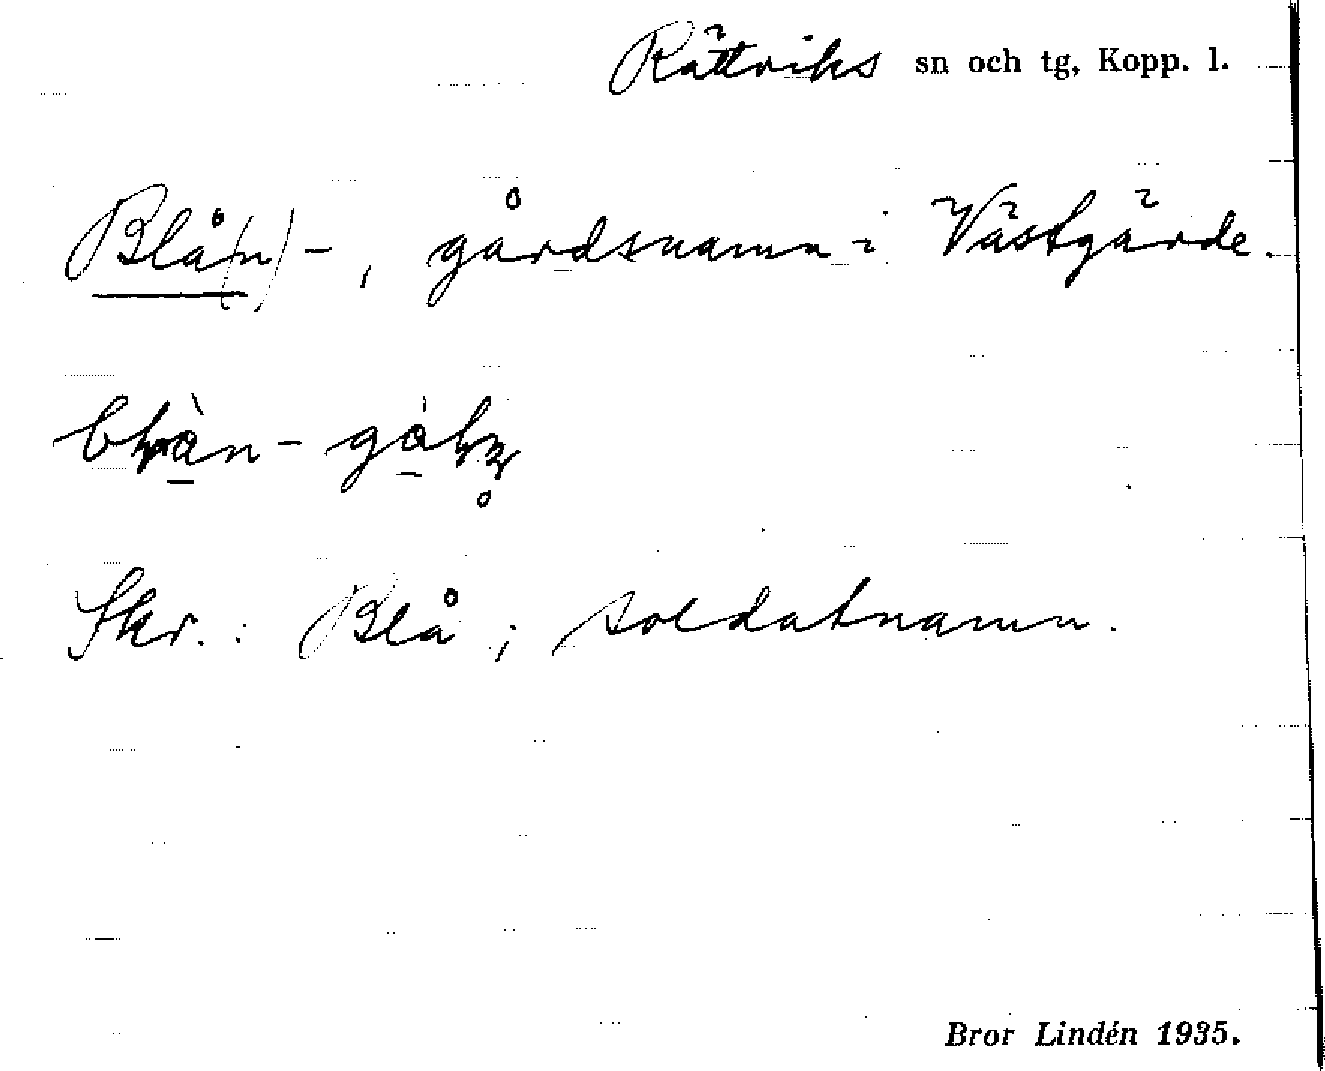 Rättviks sn och tg, Kopp. l.
Blå(n)-, gårdsnamn i Västgärde.
Skr.: Blå; soldatnamn.
Bror Lindén 1935.